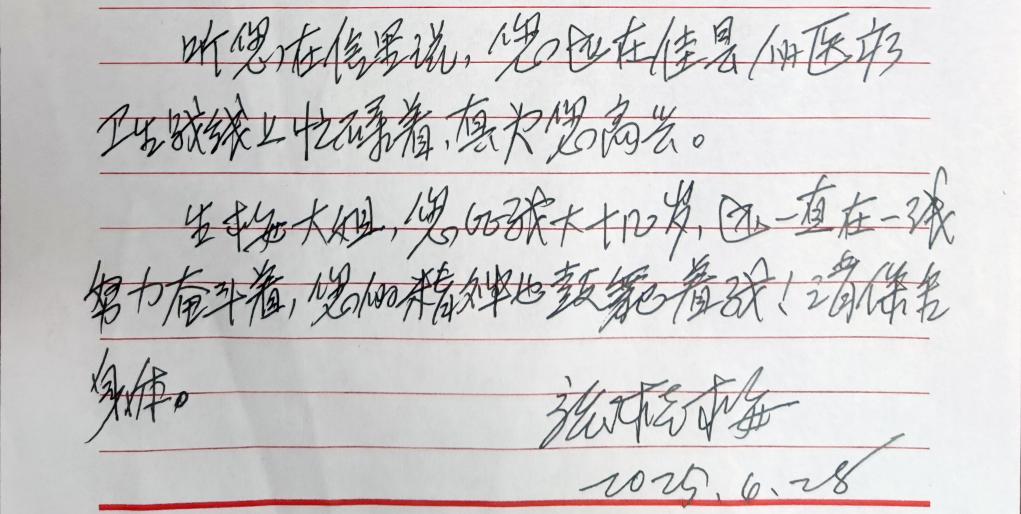 听您在信里说,您还在佳县的医疗
卫生战线上忙碌着,真为您高兴。
生梅大姐,您比我大十几岁,还一直在一线
努力奋斗着,您的精神也鼓舞着我!请保重
身体。
张桂梅
2025.6.28